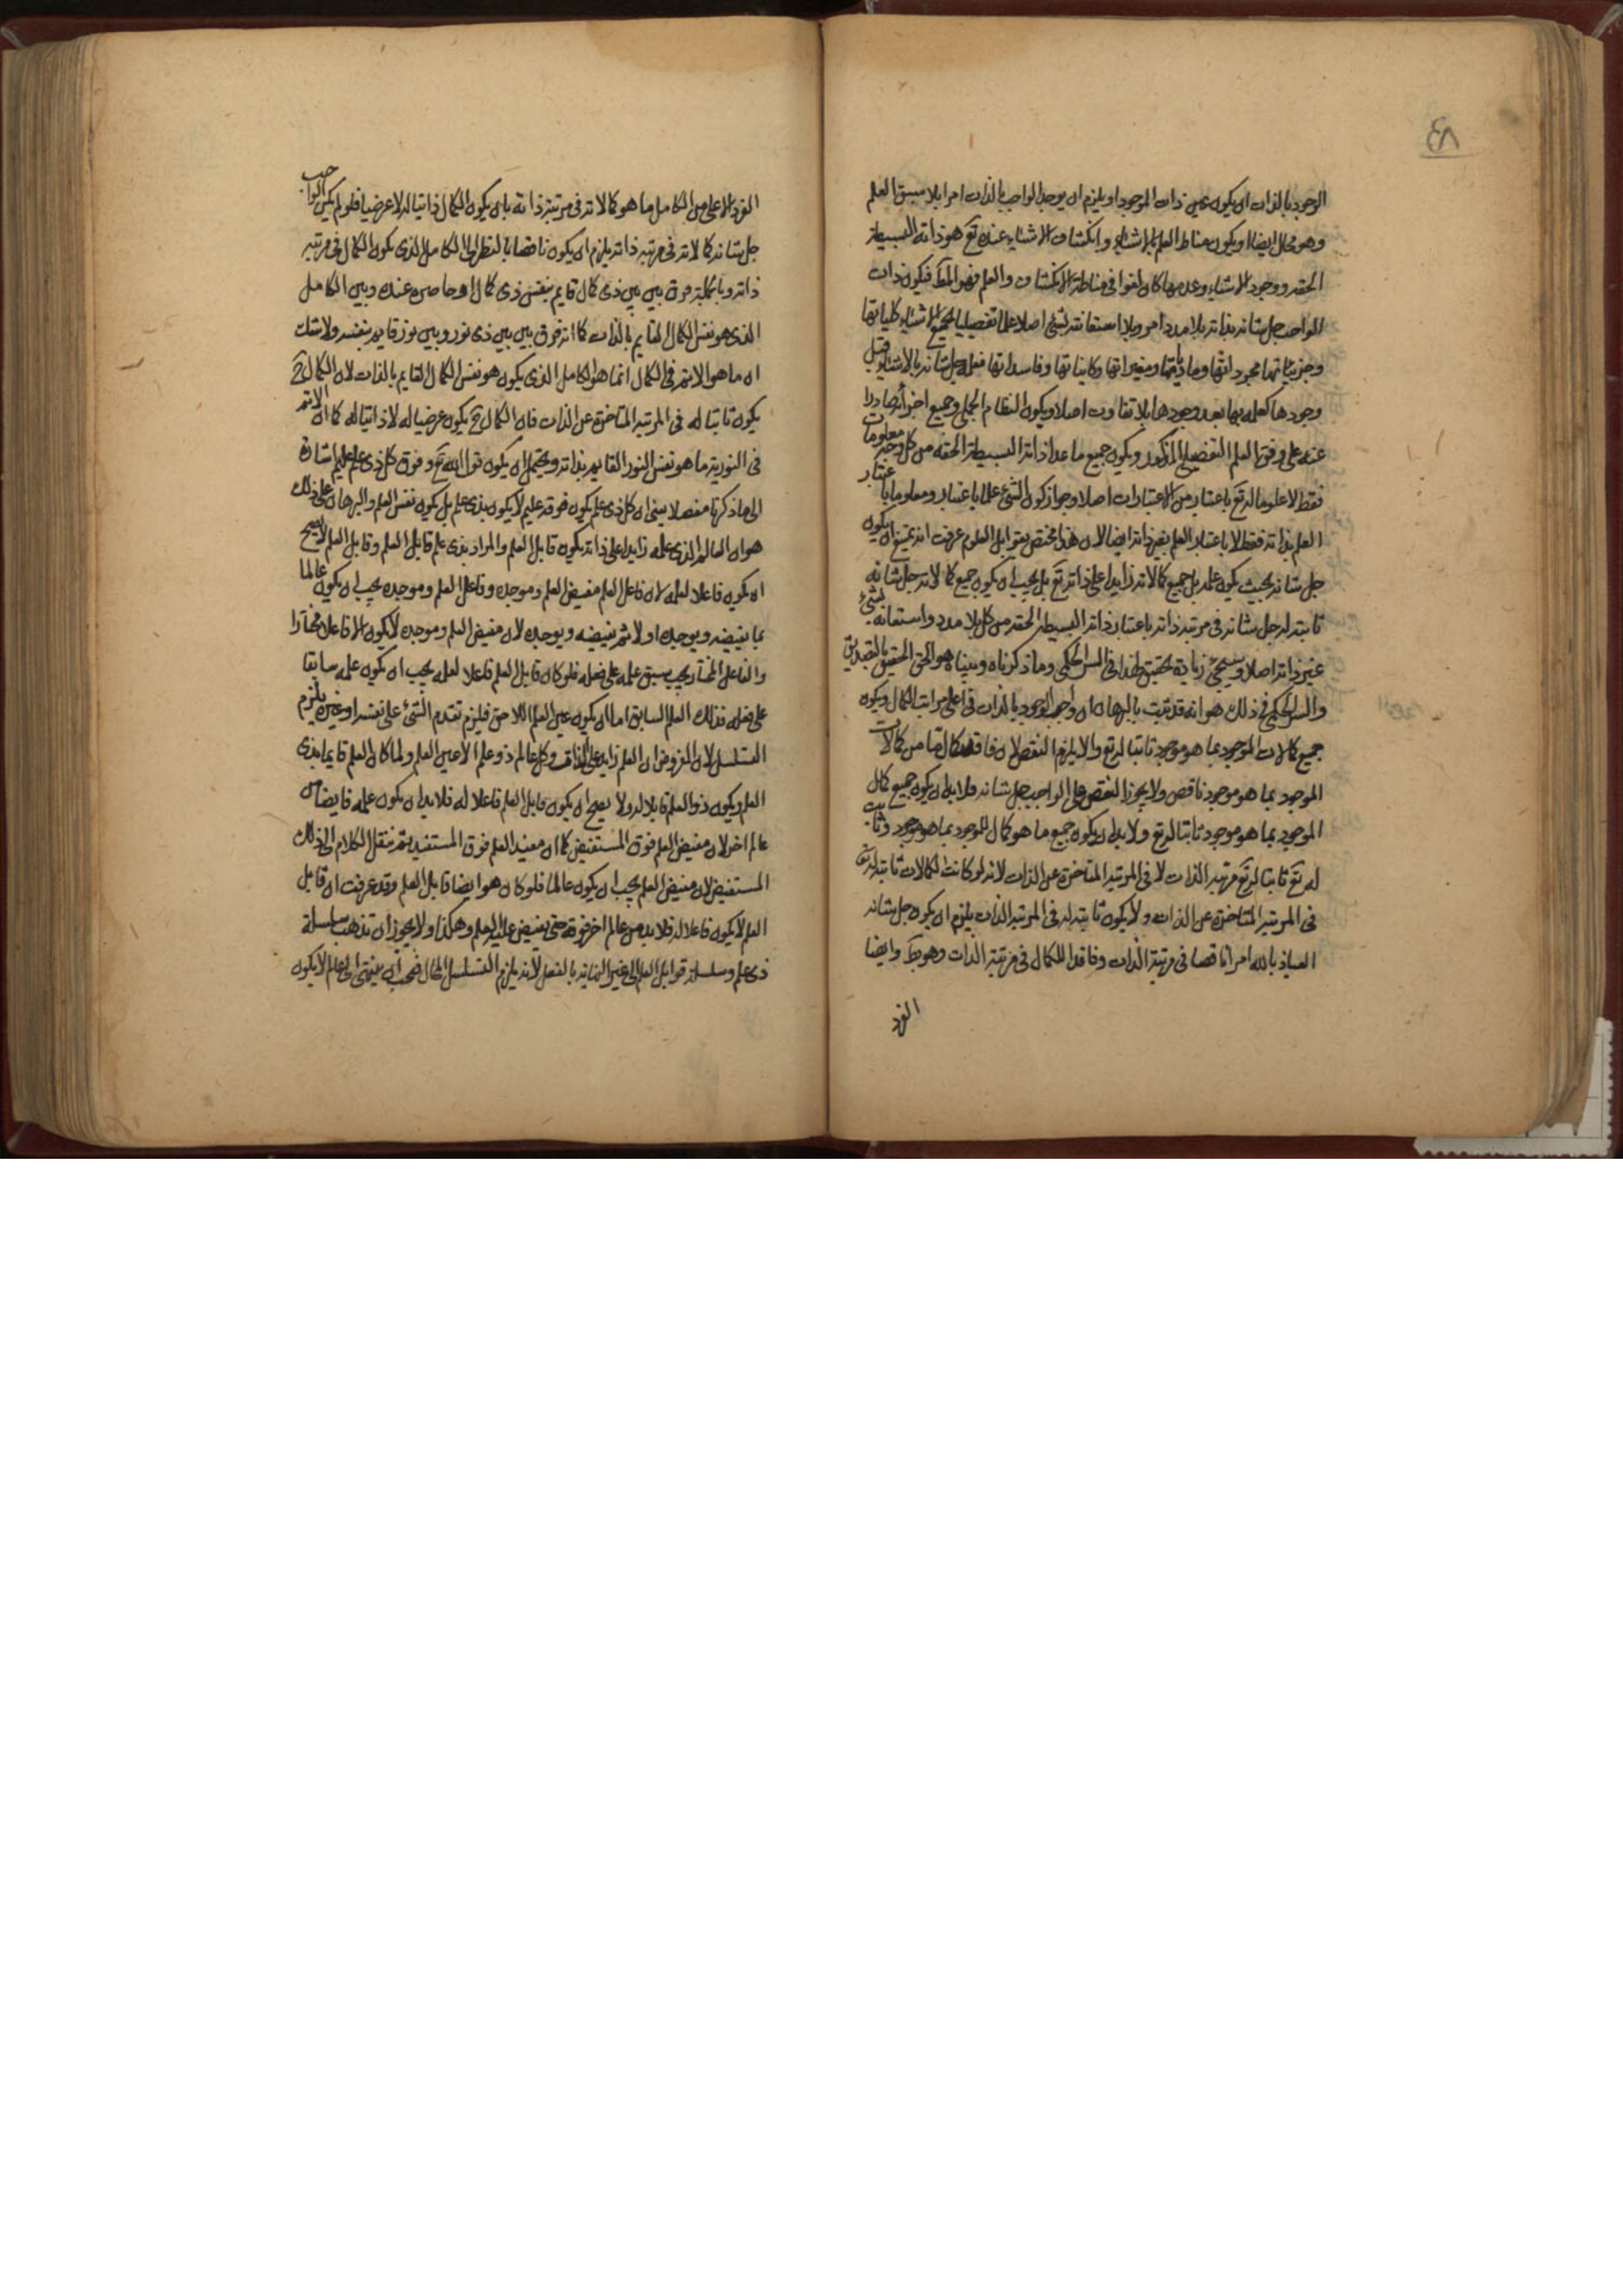 ٤٨
الوجود بالذات ان يكون عين ذات الموجود او يلزم ان يوجد الواجب بالذات امرا بلا سبق العلم
وهو محال ايضا او يكون مناط العلم بالاشياء وانكشاف الاشياء عنده تع هو ذاته البسيطة
الحقه ووجود الاشياء وعدمها كان لغوا فى مناطة الانكشاف والعلم فهو المط فيكون ذات
الواجب جل شانه بذاته بلا مدد امر وبلا استعانته لشئ اصلا علما تفصيليا لجميع الاشياء كلياتها
وجزئياتها مجرداتها ومادياتها ومغيراتها وكايناتها وفاسداتها فعله جل شانه بالاشياء قبل
وجودها كعلمه بها بعد وجودها بلا تفاوت اصلا ويكون النظام الجملى وجميع اجزائه صادرا
عنه على وفق العلم التفصيلى المذكور ويكون جميع ما عدا ذاته البسيطة الحقه من كل وجه معلومات
فقط لا علوما له تع باعتبار من الاعتبارات اصلا وجواز كون الشئ علما باعتبار ومعلوما باعتبار
العلم بذاته فقط لا باعتبار العلم بغير ذاته ايضا لان هذا مختص بقوابل العلوم عرفت انه يمتنع ان يكون
جل شانه بحيث يكون علمه بل جميع كمالاته زايدا على ذاته تع بل يجب ان يكون جميع كمالاته جل شانه
ثابتة له جل شانه فى مرتبة ذاته باعتبار ذاته البسيطة الحقه من كل بلا مدد واستعانه لشئ
غير ذاته اصلا وسيجئ زيادة تحقيق لهذا فى السر الحكمى وما ذكرناه وبيناه هو الحق الحقيق بالتصديق
والسر الحكمى فى ذلك هو انه قد ثبت بالبرهان ان واجب الوجود بالذات فى اعلى مراتب الكمال ويكون
جميع كمالات الموجود بما هو موجود ثابتا له تع والا يلزم النقص لان فاقد كمال ما من كمالات
الموجود بما هو موجود ناقص ولا يجوز النقص على الواجب جل شانه فلا بد ان يكون جميع كمال
الموجود بما هو موجود ثابتا له تع ولا بد ان يكون جميع ما هو كمال للموجود بما هو موجود وثابت
له تع ثابتا له تع مرتبة الذات لا فى المرتبة المتاخرة عن الذات لانه لو كانت الكمالات ثابتة له تع
فى المرتبة المتاخرة عن الذات ولا يكون ثابتة له فى المرتبة الذات يلزم ان يكون جل شانه
العياذ بالله امرا ناقصا فى مرتبة الذات وفاقدا للكمال فى مرتبة الذات وهو بط وايضا
الفرد
الفرد الاعلى من الكامل ما هو كمالاته فى مرتبة ذاته بان يكون الكمال ذاتيا له لا عرضيا فلو لم يكن الواجب
جل شانه كمالاته فى مرتبة ذاته يلزم ان يكون ناقصا بالنظر الى الكامل الذى يكون الكمال فى مرتبة
ذاته وبالجملة فرق بين بين ذى كمال قايم بنفس ذى كمال او حاصره عنده وبين الكامل
الذى هو نفس الكمال القايم بالذات كما انه فرق بين بين ذى نور وبين نور قايم بنفسه ولا شك
ان ما هو الاتم فى الكمال انما هو الكامل الذى يكون هو نفس الكمال القايم بالذات لان الكمال ح
يكون ثابتا له فى المرتبة المتاخرة عن الذات فان الكمال ح يكون عرضيا له لا ذاتيا له كما ان الاتم
فى النورية ما هو نفس النور القايم بذاته ويحتمل ان يكون قول الله تع وفوق كل ذى علم عليم اشارة
الى ما ذكرنا مفصلا يعنى ان كل ذى علم يكون فوقه عليم لا يكون بذى علم بل يكون نفس العلم والبرهان على ذلك
هو ان العالم الذى علمه زايدا على ذاته يكون قابل العلم والمراد بذى علم قابل العلم وقابل العلم لا يصح
ان يكون فاعلا لعلمه لان فاعل العلم مفيض العلم وموجده وفاعل العلم وموجده يجب ان يكون عالما
بما يفيضه ويوجده اولا ثم يفيضه ويوجده لان مفيض العلم وموجده لا يكون الا فاعلا مختارا
والفاعل المختار يجب سبق علمه على فعله فلو كان قابل العلم فاعلا لعلمه يجب ان يكون علمه سابقا
على فعله فذلك العلم السابق اما ان يكون عين العلم اللاحق فيلزم تقدم الشئ على نفسه او غيره يلزم
التسلسل لان المفروض ان العلم زايد على الذات وكل عالم ذو علم الا عين العلم ولما كان العلم قايما بذى
العلم ويكون ذو العلم قابلا له ولا يصح ان يكون قابل العلم فاعلا له فلا بد ان يكون علمه فايضا من
عالم اخر لان مفيض العلم فوق المستفيض كما ان مفيد العلم فوق المستفيد ثم ننقل الكلام الى ذلك
المستفيض لان مفيض العلم يجب ان يكون عالما فلو كان هو ايضا قابل العلم وقد عرفت ان قابل
العلم لا يكون فاعلا له فلا بد من عالم اخر فوقه حتى يفيض عليه العلم وهكذا ولا يجوز ان تذهب سلسلة
ذى علم وسلسلة قوابل العلم الى غير النهاية بالفعل لانه يلزم التسلسل المحال فيجب ان ينتهى الى عالم لا يكون